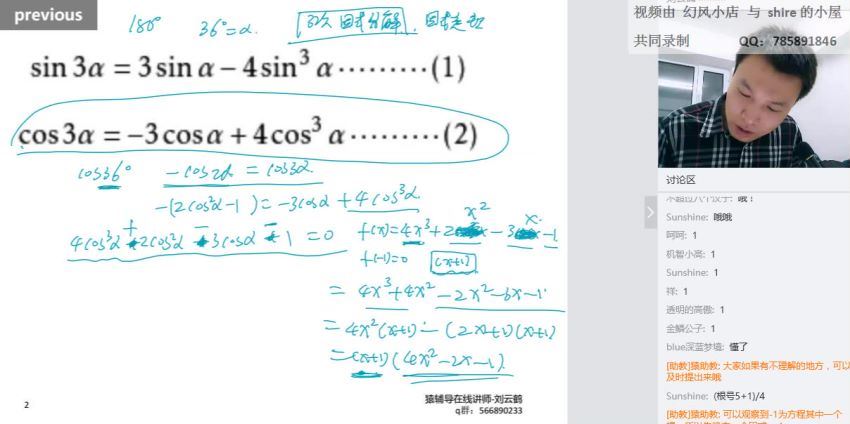 previous
180° 36°=α. 3次 因式分解
sin 3α = 3 sin α − 4 sin³ α ………(1)
cos 3α = −3 cos α + 4 cos³ α ………(2)
cos36° −cos2α = cos3α
−(2cos²α−1) = −3cosα + 4cos³α
4cos³α + 2cos²α − 3cosα − 1 = 0
f(x)=4x³+2x²−3x−1
f(−1)=0 (x+1)
= 4x³+4x²−2x²−3x−1
= 4x²(x+1) − (2x+1)(x+1)
= (x+1)(4x²−2x−1)
2
猿辅导在线讲师-刘云鹤
q群：566890233
视频由 幻风小店 与 shire 的小屋
共同录制 QQ：785891846
讨论区
Sunshine: 哦哦
呵呵: 1
机智小高: 1
Sunshine: 1
祥: 1
透明的高傲: 1
金鳞公子: 1
blue深蓝梦境: 懂了
[助教]猿助教: 大家如果有不理解的地方，可以
及时提出来哦
Sunshine: (根号5+1)/4
[助教]猿助教: 可以观察到-1为方程其中一个